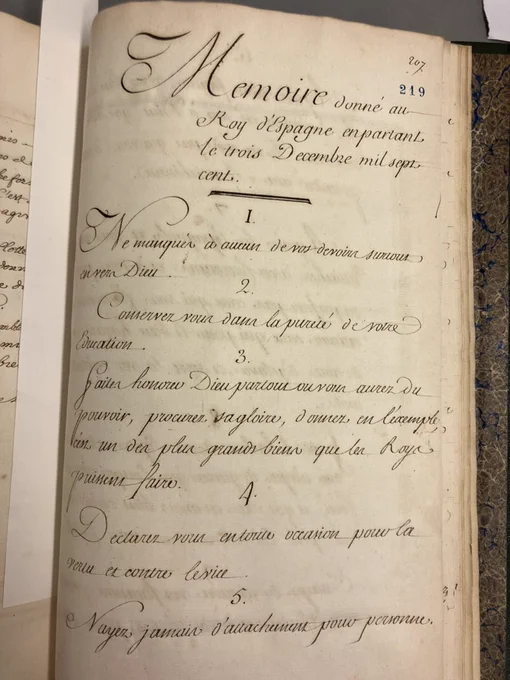 207
219
Memoire donné au
Roy d'Espagne en partant
le trois Decembre mil sept
cent.
1.
Ne manquéz a aucun de vos devoirs surtout
envers Dieu.
2.
Conservez vous dans la pureté de votre
Education.
3.
faites honorer Dieu partout ou vous aurez du
pouvoir, procurez sa gloire, donnez en l'éxemple,
c'est un des plus grands biens que les Roys
puissent faire.
4.
Declarez vous en toute occasion pour la
vertu et contre le vice.
5.
Nayez jamais d'attachement pour personne.